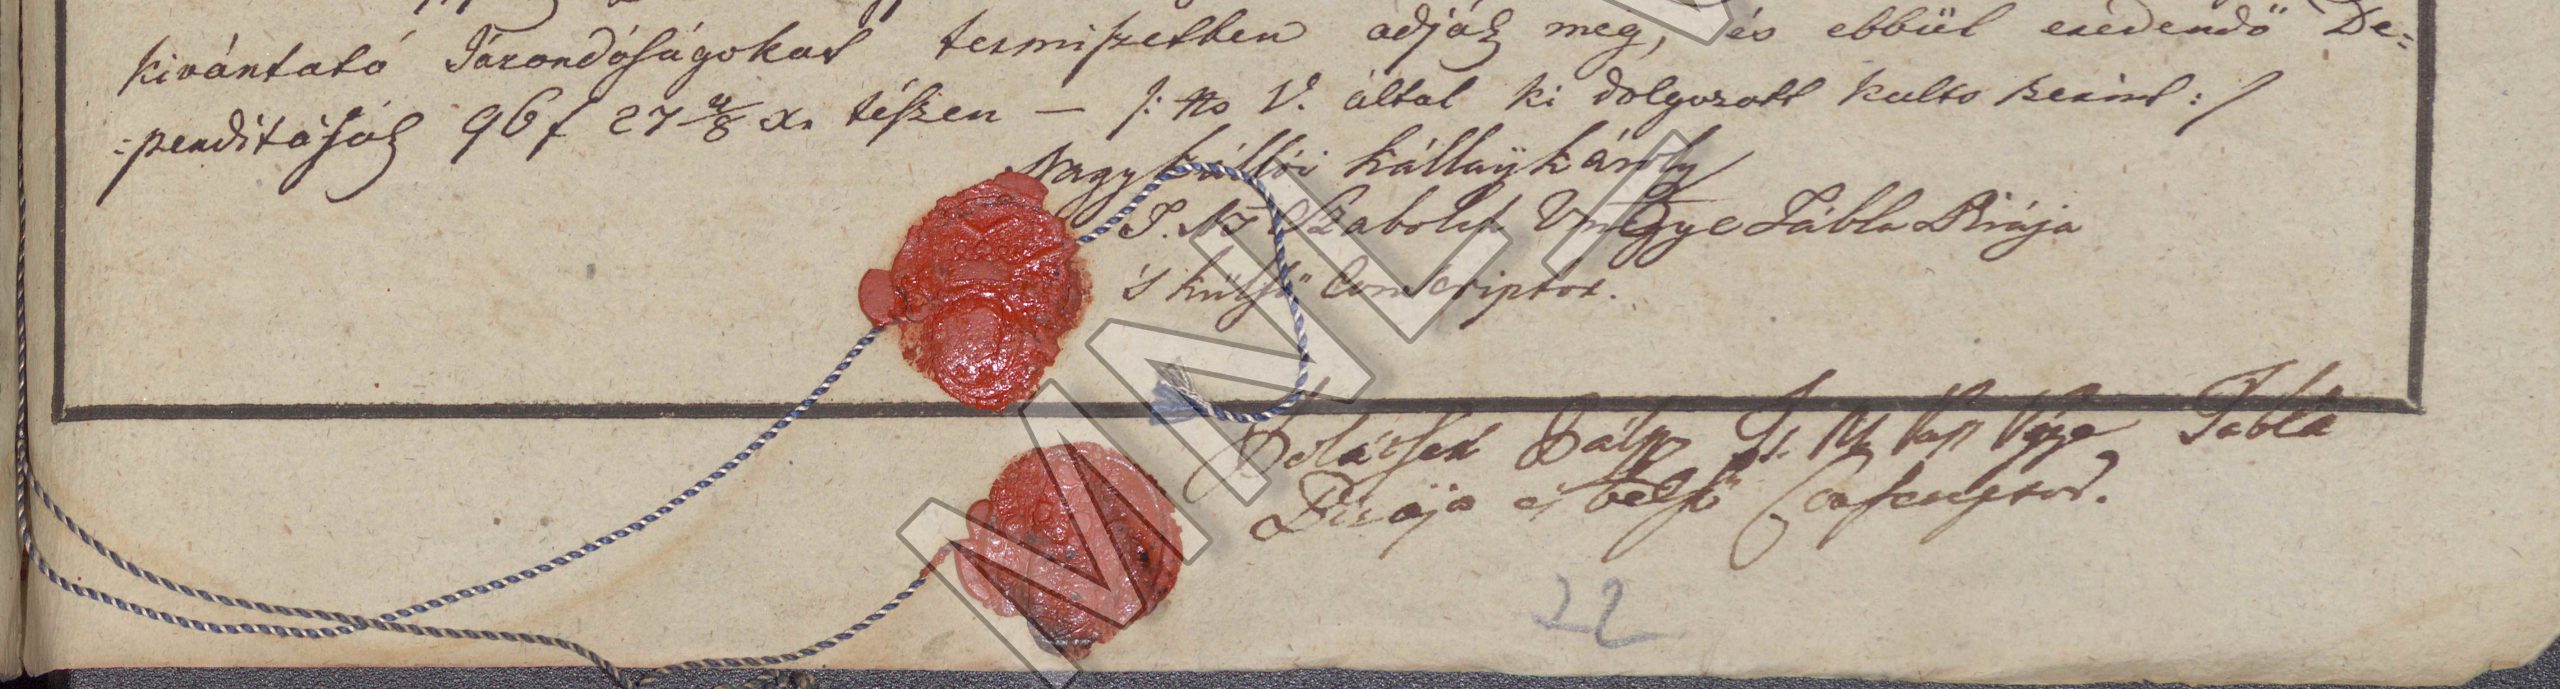 kivántató Járandóságokat termiszetben adják meg, és ebbül eredendő De-
-penditásók 96 f 27 4/8 x. tészen — /: No V. által ki dolgozott kults szerint :/
Nagy kállói Kállaÿ Károly
T. N. Szabolch Vmegye Tábla Birája
's külső Conscriptor.
Pálÿ T. N. Tabla
Birája és belső Conscriptor.
22
MNL